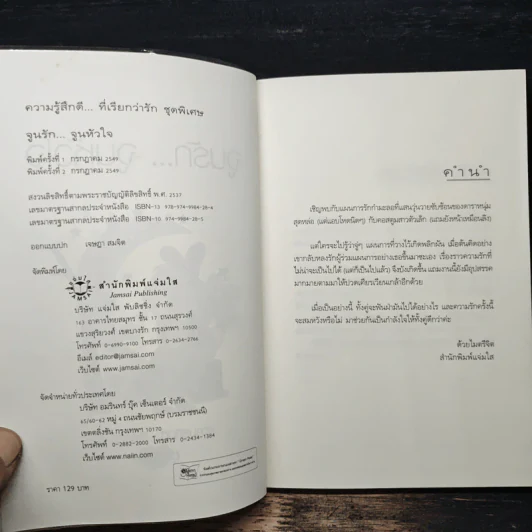 ความรู้สึกดี... ที่เรียกว่ารัก ชุดพิเศษ
จูนรัก... จูนหัวใจ
พิมพ์ครั้งที่ 1 กรกฎาคม 2549
พิมพ์ครั้งที่ 2 กรกฎาคม 2549
สงวนลิขสิทธิ์ตามพระราชบัญญัติลิขสิทธิ์ พ.ศ. 2537
เลขมาตรฐานสากลประจำหนังสือ ISBN-13 978-974-9984-28-4
เลขมาตรฐานสากลประจำหนังสือ ISBN-10 974-9984-28-5
ออกแบบปก เจษฎา สมจิต
จัดพิมพ์โดย
สำนักพิมพ์แจ่มใส
Jamsai Publishing
บริษัท แจ่มใส พับลิชชิ่ง จำกัด
163 อาคารไทยสมุทร ชั้น 17 ถนนสุรวงศ์
แขวงสุริยวงศ์ เขตบางรัก กรุงเทพฯ 10500
โทรศัพท์ 0-6990-9100 โทรสาร 0-2634-2766
อีเมล์ editor@jamsai.com
เว็บไซต์ www.jamsai.com
จัดจำหน่ายทั่วประเทศโดย
บริษัท อมรินทร์ บุ๊ค เซ็นเตอร์ จำกัด
65/60-62 หมู่ 4 ถนนชัยพฤกษ์ (บรมราชชนนี)
เขตตลิ่งชัน กรุงเทพฯ 10170
โทรศัพท์ 0-2882-2000 โทรสาร 0-2434-1384
เว็บไซต์ www.naiin.com
ราคา 129 บาท
คำนำ
เชิญพบกับแผนการรักกำมะลอที่แสนวุ่นวายซับซ้อนของดาราหนุ่ม
สุดหล่อ (แต่แอบโหดนิดๆ) กับคอสตูมสาวตัวเล็ก (แถมยังหน้าเหมือนลิง)
แต่ใครจะไปรู้ว่าจู่ๆ แผนการที่วางไว้เกิดพลิกผัน เมื่อต้นคิดอย่าง
เขากลับหลงรักผู้ร่วมแผนการอย่างเธอขึ้นมาซะเอง เรื่องราวความรักที่
ไม่น่าจะเป็นไปได้ (แต่ก็เป็นไปแล้ว) จึงบังเกิดขึ้น แถมงานนี้ยังมีอุปสรรค
มากมายตามมาให้ปวดเศียรเวียนเกล้าอีกด้วย
เมื่อเป็นอย่างนี้ ทั้งคู่จะฟันฝ่ามันไปได้อย่างไร และความรักครั้งนี้
จะสมหวังหรือไม่ มาช่วยกันเป็นกำลังใจให้ทั้งคู่ดีกว่าค่ะ
ด้วยไมตรีจิต
สำนักพิมพ์แจ่มใส